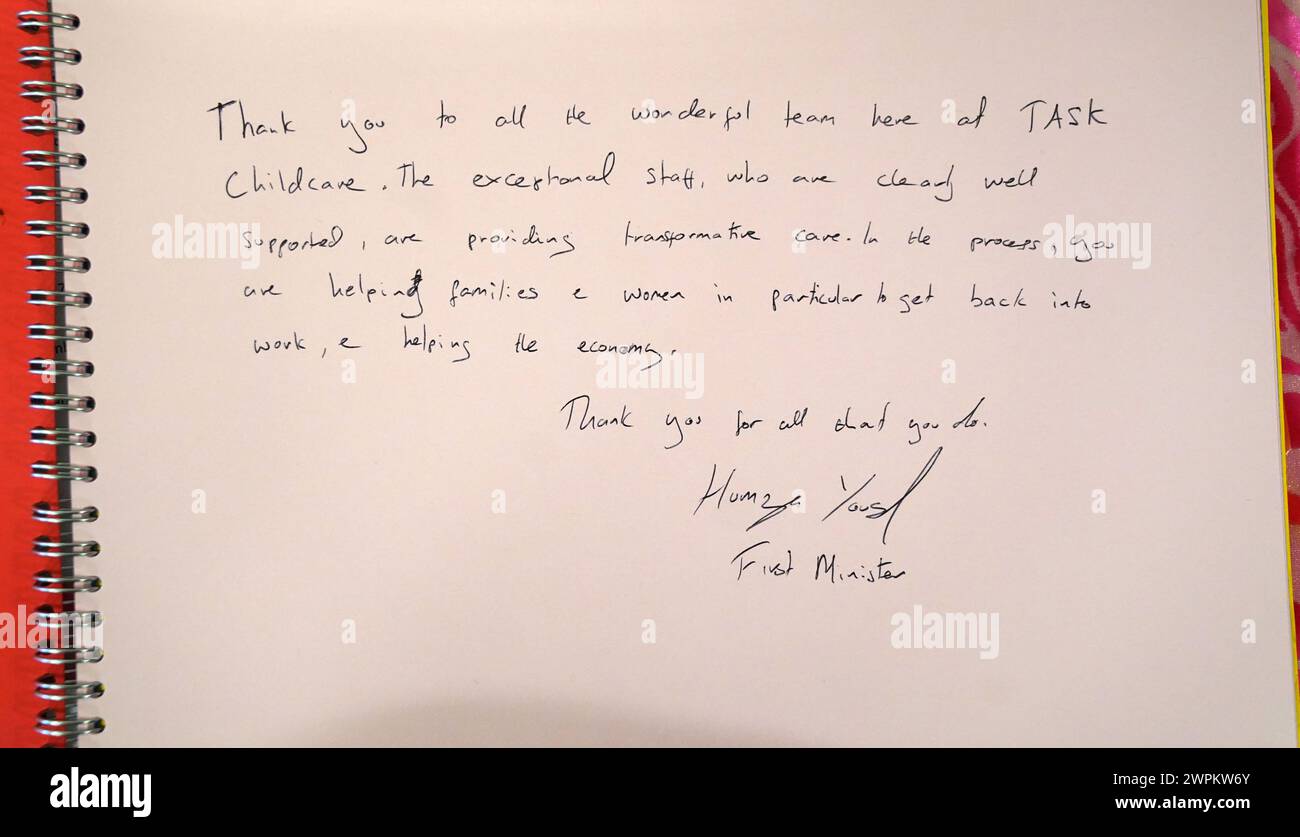 Thank you to all the wonderful team here at TASK
Childcare. The exceptional staff, who are clearly well
supported, are providing transformative care. In the process, you
are helping families & women in particular to get back into
work, & helping the economy.
Thank you for all that you do.
Humza Yousaf
First Minister
alamy
alamy
Image ID: 2WPKW6Y
www.alamy.com